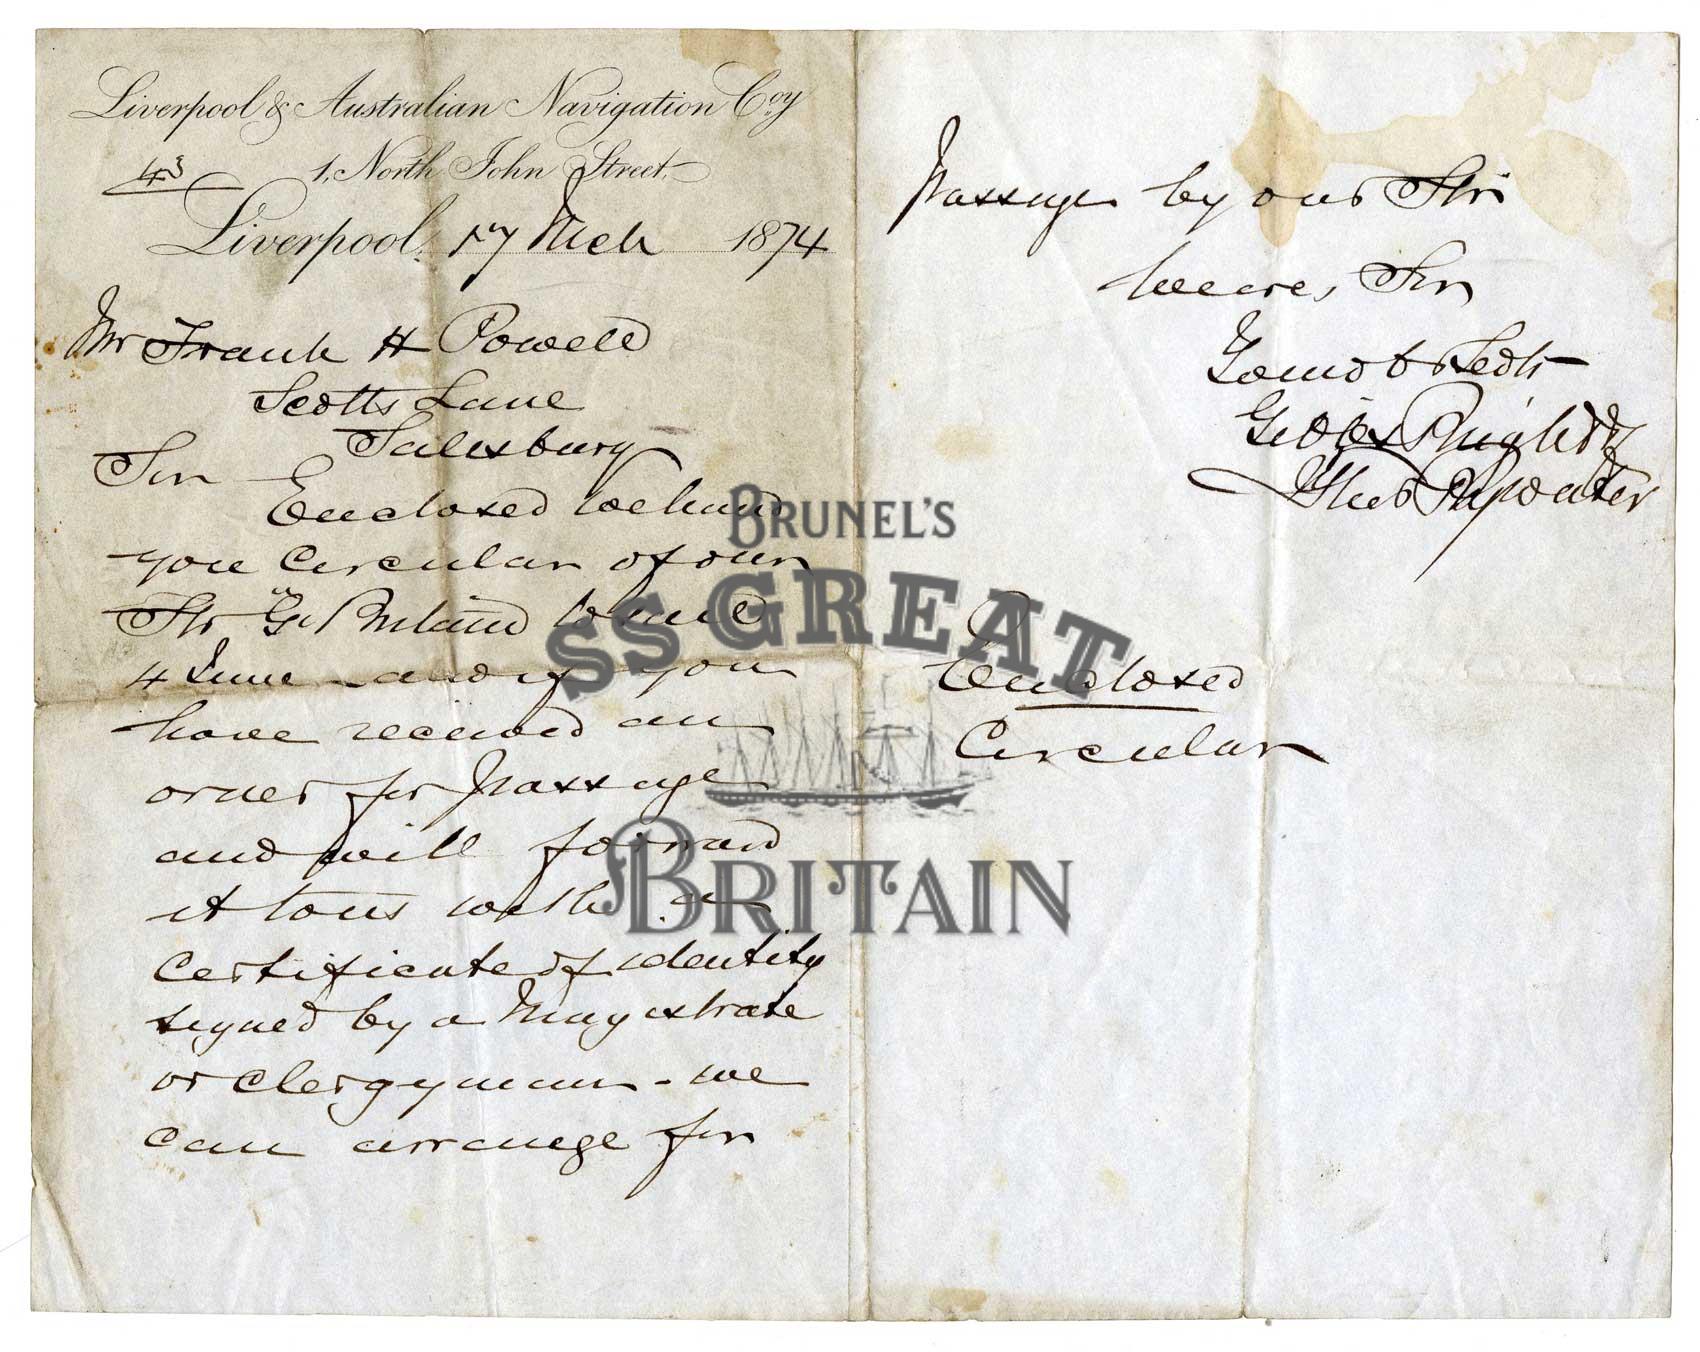 Liverpool & Australian Navigation Coy
43 1, North John Street.
Liverpool, 17 Mch 1874
Mr Frank H Powell
Scotts Lane
Salisbury
Sir
Enclosed we hand
you Circular of our
Str Gt Britain to sail
4 June - and if you
have received an
order for passage
and will forward
it to us with a
Certificate of identity
signed by a Magistrate
or Clergyman - we
can arrange for
Passage by our Str
We are, Sir
Your obt Sedts
Gibbs Bright &
Enclosed
Circular
BRUNEL'S
SS GREAT
BRITAIN